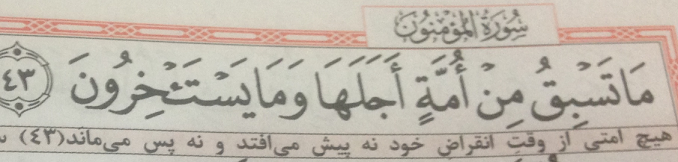 سُورَةُ المُؤْمِنُونَ
مَا تَسْبِقُ مِنْ أُمَّةٍ أَجَلَهَا وَمَا يَسْتَـْٔخِرُونَ ٤٣
هیچ امتی از وقت انقراض خود نه پیش می‌افتد و نه پس می‌ماند(٤٣)